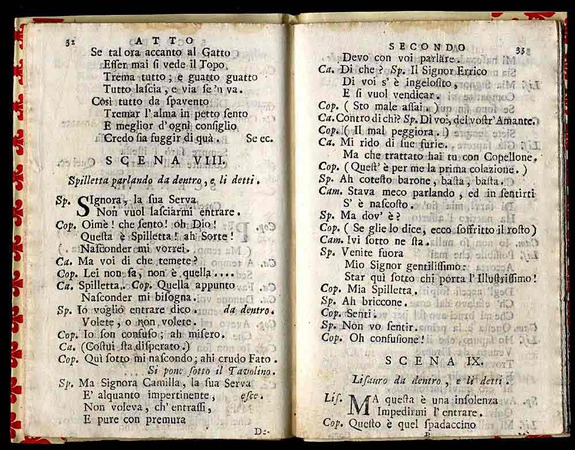 32 ATTO
Se tal ora accanto al Gatto
Esser mai si vede il Topo,
Trema tutto; e guatto guatto
Tutto lascia, e via se 'n va.
Così tutto da spavento
Tremar l'alma in petto sento
E meglior d'ogni consiglio
Credo sia fuggir di quà. Se ec.
SCENA VIII.
Spilletta parlando da dentro, e li detti.
Sp. SIgnora, la sua Serva
Non vuol lasciarmi entrare.
Cop. Oimè! che sento! oh Dio!
Questa è Spilletta! ah Sorte!
Nasconder mi vorrei.
Ca. Ma voi di che temete?
Cop. Lei non sa, non è quella....
Ca. Spilletta. Cop. Quella appunto
Nasconder mi bisogna.
Sp. Io voglio entrare dico. da dentro.
Volete, o non volete.
Cop. Io son confuso; ah misero.
Ca. (Costui sta disperato.)
Cop. Quì sotto mi nascondo; ahi crudo Fato.
Si pone sotto il Tavolino.
Sp. Ma Signora Camilla, la sua Serva
E' alquanto impertinente, esce.
Non voleva, ch'entrassi,
E pure con premura
De-
SECONDO 33
Devo con voi parlare.
Ca. Di che? Sp. Il Signor Errico
Di voi s'è ingelosito,
E si vuol vendicar.
Cop. (Sto male assai.)
Ca. Contro di chi? Sp. Di voi, del vostr'Amante.
Cop. (Il mal peggiora.)
Ca. Mi rido di sue furie.
Ma che trattato hai tu con Copellone.
Cop. (Quest'è per me la prima colazione.)
Sp. Ah cotesto barone, basta, basta.
Cam. Stava meco parlando, ed in sentirti
S'è nascosto.
Sp. Ma dov'è?
Cop. (Se glie lo dice, ecco soffritto il rosto)
Cam. Ivi sotto ne sta.
Sp. Venite fuora
Mio Signor gentilissimo.
Star quì sotto chi porta l'Illustrissimo!
Cop. Mia Spilletta.
Sp. Ah briccone.
Cop. Senti.
Sp. Non vo sentir.
Cop. Oh confusione!
SCENA IX.
Lisauro da dentro, e li detti.
Lis. MA questa è una insolenza
Impedirmi l'entrare.
Cop. Questo è quel spadaccino